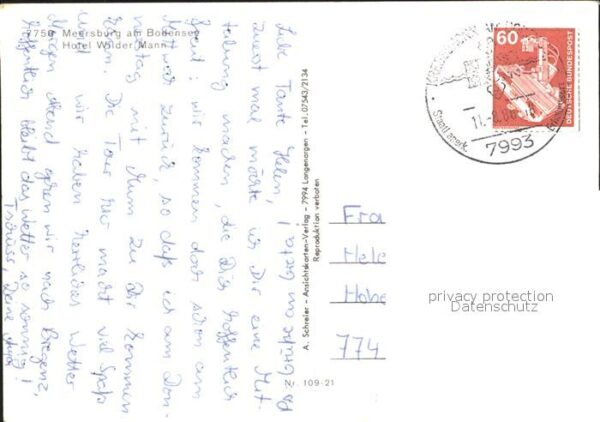 7758 Meersburg am Bodensee
Hotel Wilder Mann
Liebe Tante Helen! Opa Grüße an
zuerst mal möchte ich Dir eine Mit-
teilung machen, die Dich hoffentlich
freut: wir kommen dort schon am
Mittwoch zurück, so daß ich am Don-
nerstag mit Mum zu Dir kommen
kann. Die Tour hier macht viel Spaß
und wir haben herrliches Wetter
Morgen Abend gehen wir nach Bregenz,
hoffentlich bleibt das Wetter so sonnig!
Tschüss, Deine
A. Schreier - Ansichtskarten-Verlag - 7994 Langenargen - Tel. 07543/2134
Reproduktion verboten
Nr. 109-21
60
DEUTSCHE BUNDESPOST
7993
Fra
Hele
Hohe
774
privacy protection
Datenschutz